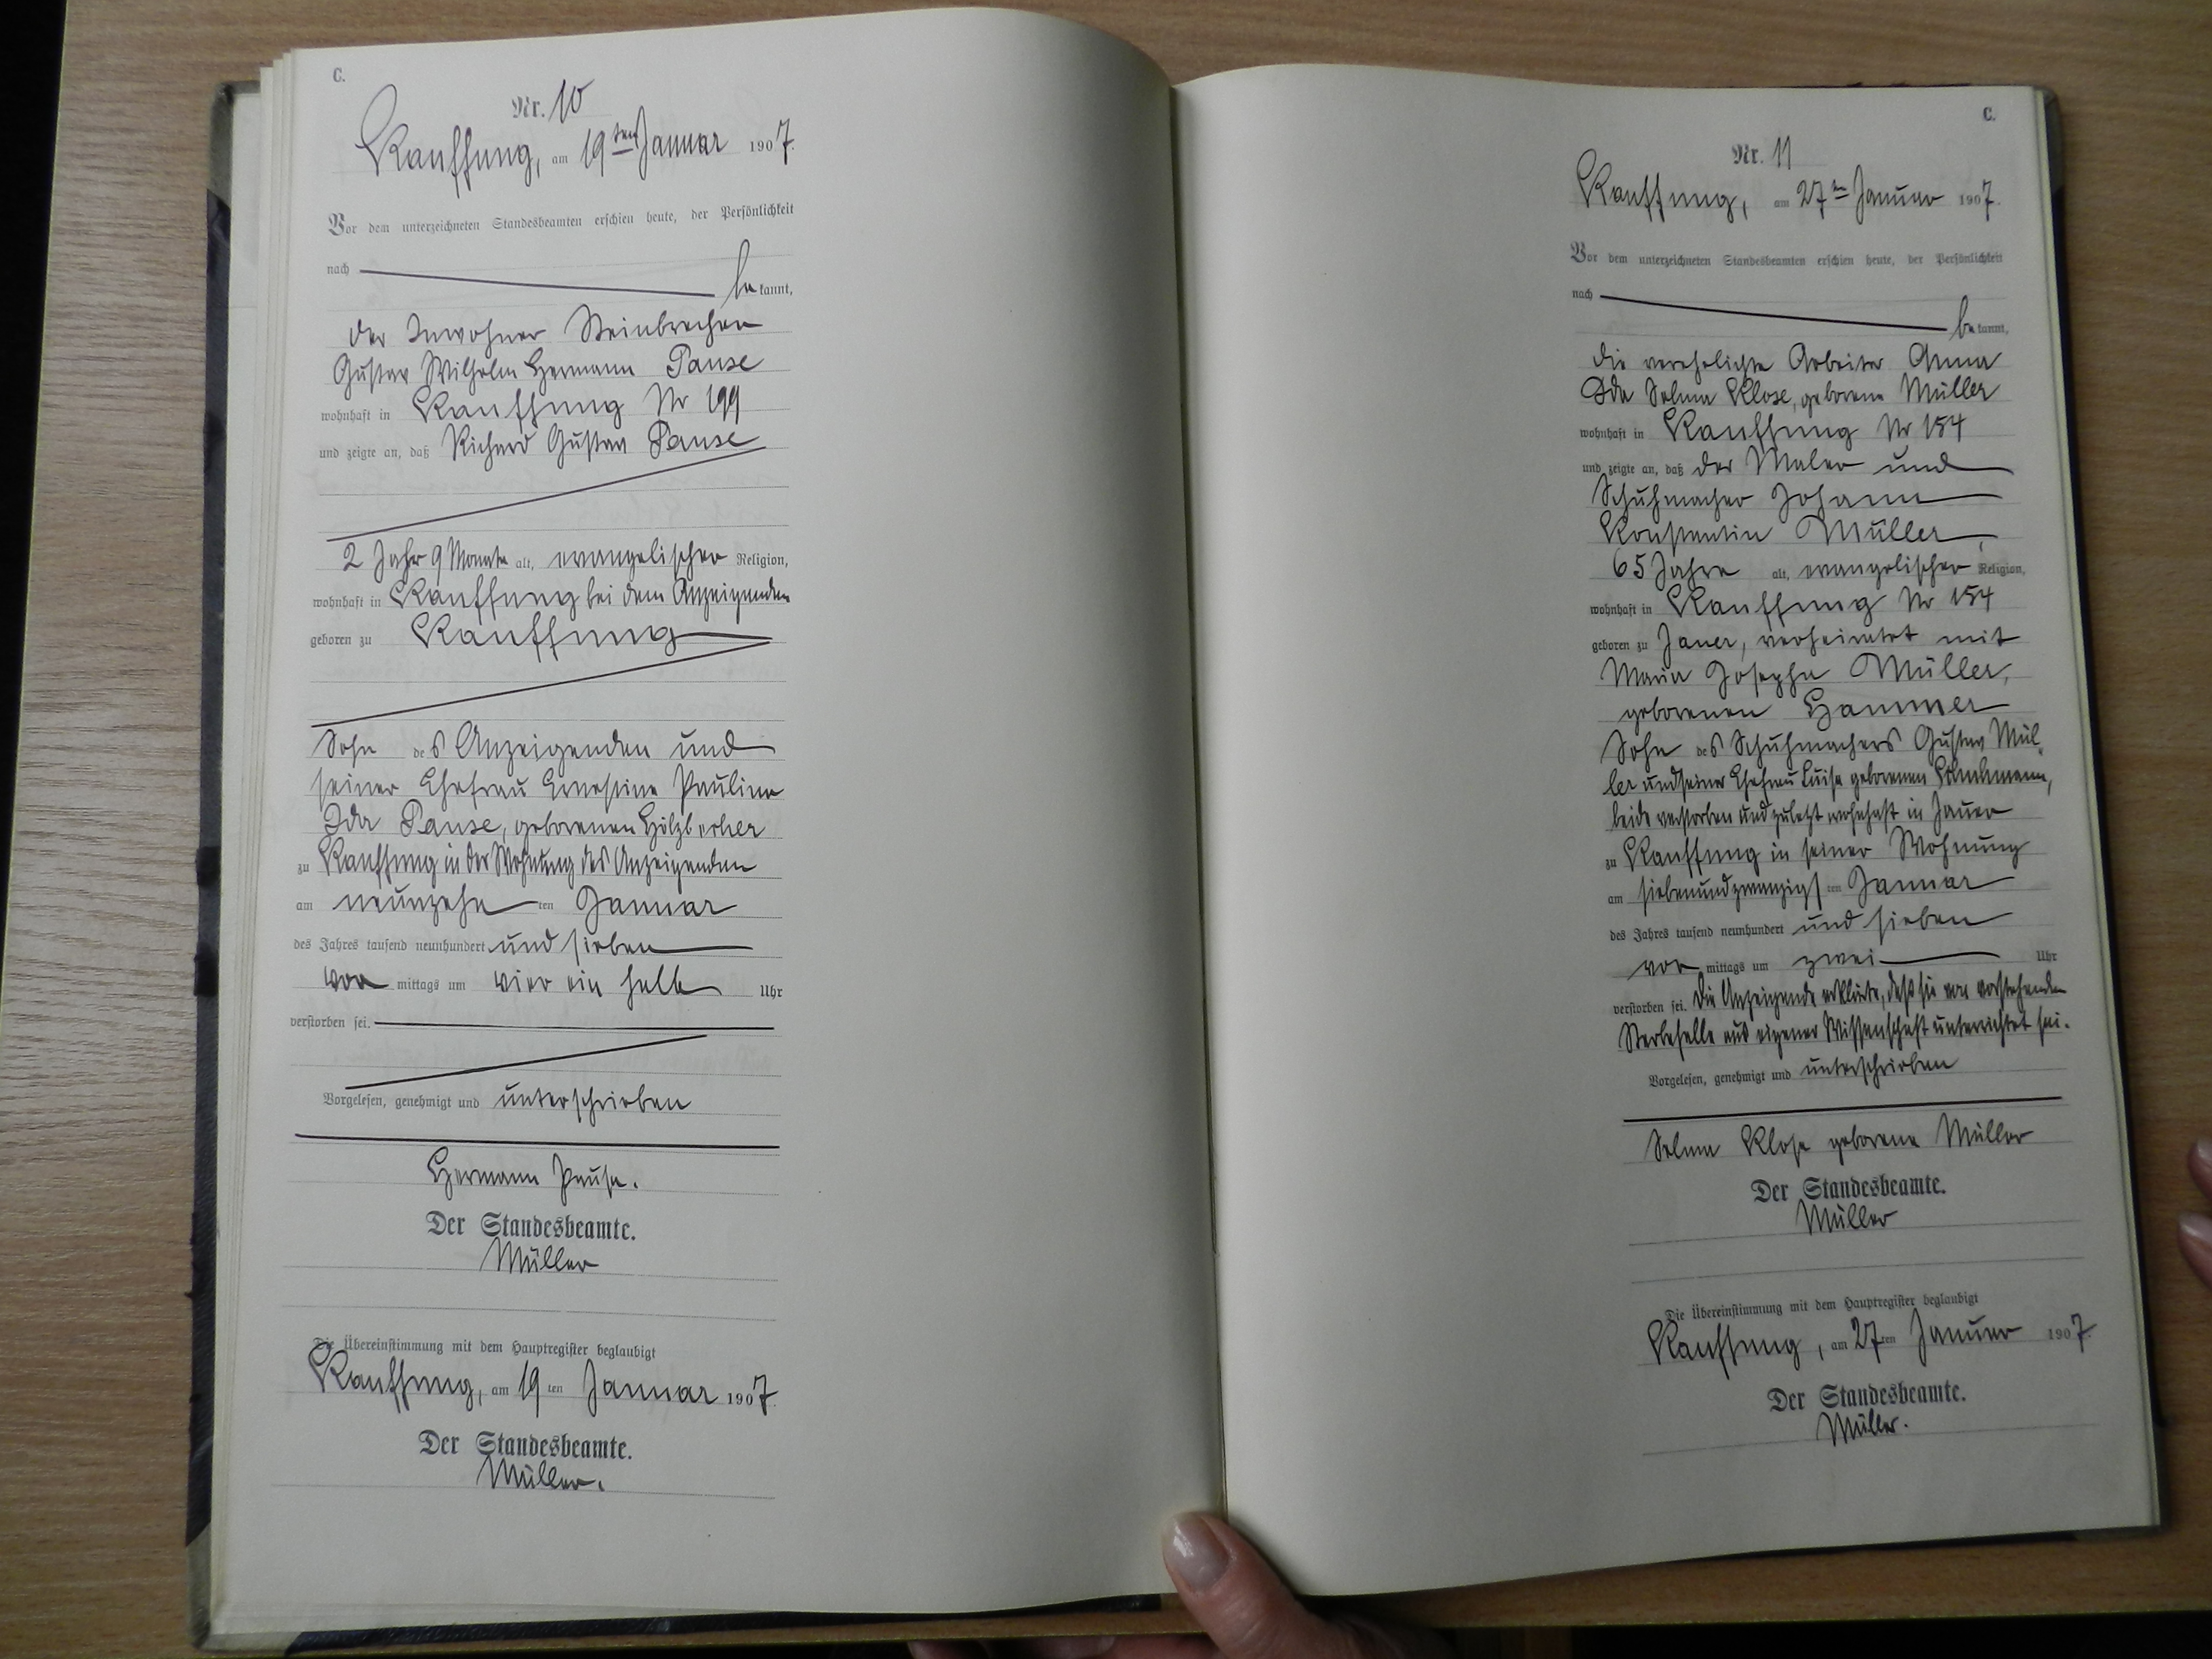 C.
Nr. 10
Kauffung, am 19ten Januar 1907.
Vor dem unterzeichneten Standesbeamten erschien heute, der Persönlichkeit
nach be kannt,
der Inwohner Steinbrecher
Gustav Wilhelm Hermann Pause
wohnhaft in Kauffung Nr 199
und zeigte an, daß Richard Gustav Pause
2 Jahr 9 Monate alt, evangelischer Religion,
wohnhaft in Kauffung bei dem Anzeigenden
geboren zu Kauffung
Sohn des Anzeigenden und
seiner Ehefrau Ernestine Pauline
Ida Pause, geborenen Hölzbecher
zu Kauffung in der Wohnung des Anzeigenden
am neunzehn ten Januar
des Jahres tausend neunhundert und sieben
vor mittags um vier ein halb Uhr
verstorben sei.
Vorgelesen, genehmigt und unterschrieben
Hermann Pause.
Der Standesbeamte.
Müller
Die Übereinstimmung mit dem Hauptregister beglaubigt
Kauffung, am 19 ten Januar 1907.
Der Standesbeamte.
Müller.
C.
Nr. 11
Kauffung, am 27ten Januar 1907.
Vor dem unterzeichneten Standesbeamten erschien heute, der Persönlichkeit
nach be kannt,
die verehelichte Arbeiter Anna
Ida Selma Klose, geborene Müller
wohnhaft in Kauffung Nr 154
und zeigte an, daß der Maler und
Schuhmacher Johann
Konstantin Müller,
65 Jahre alt, evangelischer Religion,
wohnhaft in Kauffung Nr 154
geboren zu Jauer, verheiratet mit
Maria Josepha Müller,
geborenen Hammer
Sohn des Schuhmachers Gustav Mül-
ler und seiner Ehefrau Luise geborenen
beide verstorben und zuletzt wohnhaft in Jauer
zu Kauffung in seiner Wohnung
am siebenundzwanzigs ten Januar
des Jahres tausend neunhundert und sieben
vor mittags um zwei Uhr
verstorben sei. Die Anzeigende erklärte, daß sie von vorstehenden
Sterbefalle aus eigener Wissenschaft unterrichtet sei.
Vorgelesen, genehmigt und unterschrieben
Selma Klose geborene Müller
Der Standesbeamte.
Müller
Die Übereinstimmung mit dem Hauptregister beglaubigt
Kauffung, am 27ten Januar 1907.
Der Standesbeamte.
Müller.